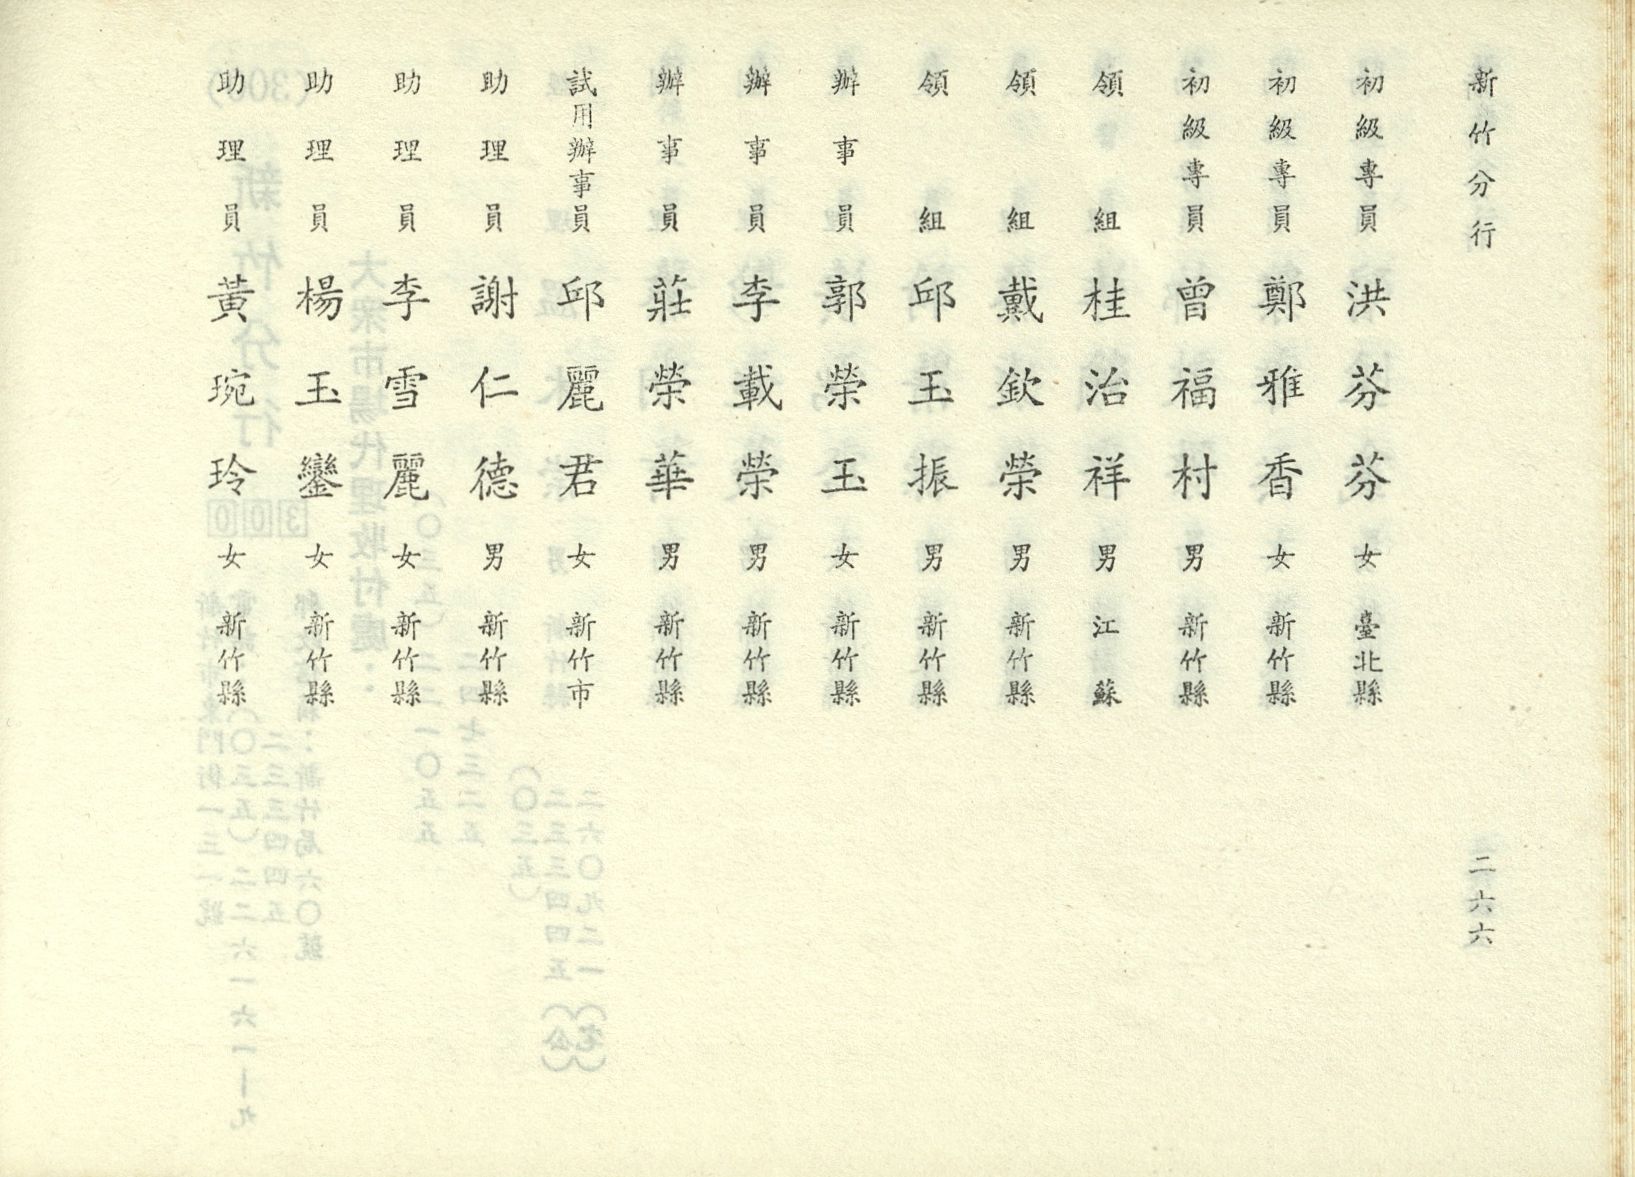 新竹分行 二六六
初級專員 洪芬芬 女 臺北縣
初級專員 鄭雅香 女 新竹縣
初級專員 曾福村 男 新竹縣
領組 桂治祥 男 江蘇
領組 戴欽榮 男 新竹縣
領組 邱玉振 男 新竹縣
辦事員 郭榮玉 女 新竹縣
辦事員 李載榮 男 新竹縣
辦事員 莊榮華 男 新竹縣
試用辦事員 邱麗君 女 新竹市
助理員 謝仁德 男 新竹縣
助理員 李雪麗 女 新竹縣
助理員 楊玉鑾 女 新竹縣
助理員 黃琬玲 女 新竹縣